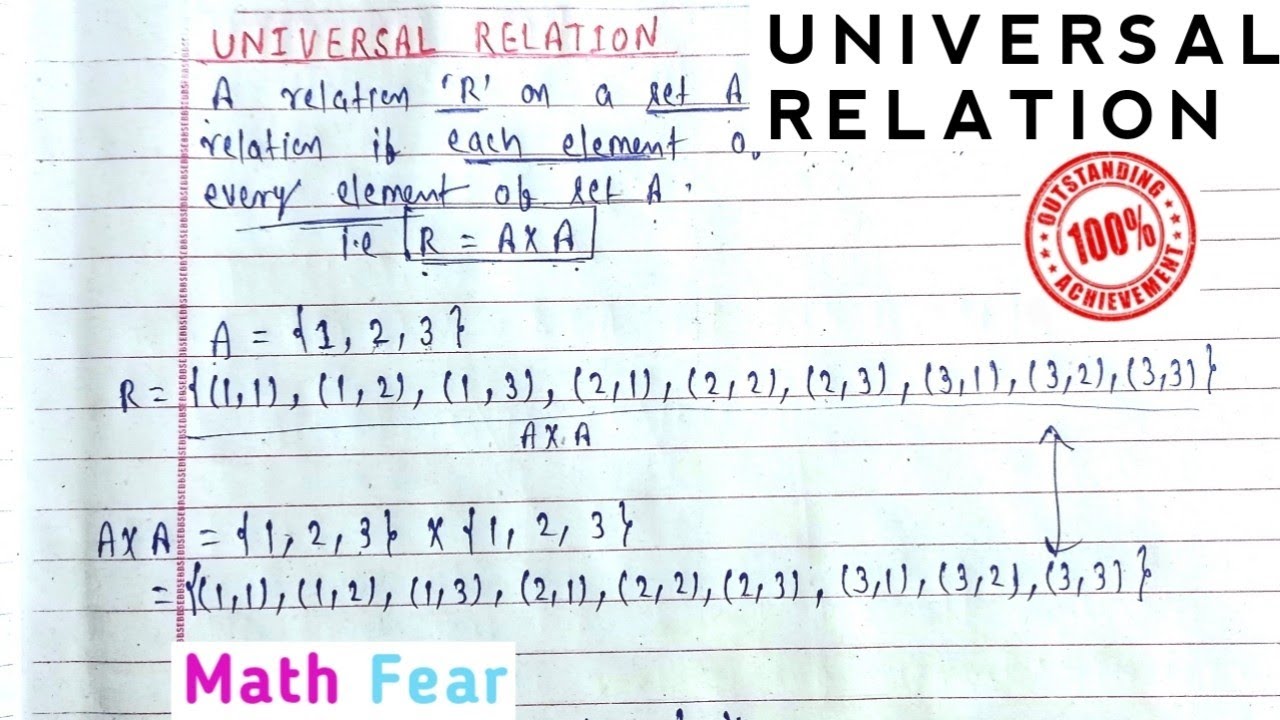 UNIVERSAL RELATION
UNIVERSAL
RELATION
A relation 'R' on a set A
relation if each element
every element of set A.
i.e R = A X A
OUTSTANDING
100%
ACHIEVEMENT
A = {1, 2, 3}
R = {(1,1), (1,2), (1,3), (2,1), (2,2), (2,3), (3,1), (3,2), (3,3)}
A X A
A X A = {1, 2, 3} X {1, 2, 3}
= {(1,1), (1,2), (1,3), (2,1), (2,2), (2,3), (3,1), (3,2), (3,3)}
Math Fear